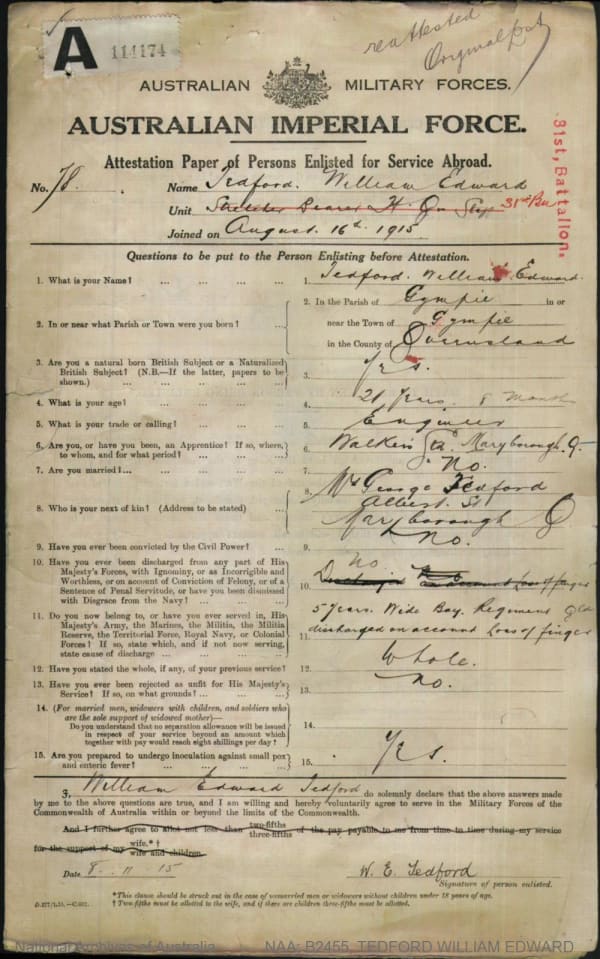 A 114174
reattested
Original lost
AUSTRALIAN MILITARY FORCES.
AUSTRALIAN IMPERIAL FORCE.
Attestation Paper of Persons Enlisted for Service Abroad.
No. 78. Name Tedford. William Edward
Unit Stretcher Bearer H. Q. 31st Bn
31st, Battalion.
Joined on August 16th 1915
Questions to be put to the Person Enlisting before Attestation.
1. What is your Name? ... ... ... ... 1. Tedford. William Edward.
2. In or near what Parish or Town were you born? ... 2. In the Parish of Gympie in or
near the Town of Gympie
in the County of Queensland
3. Are you a natural born British Subject or a Naturalized
British Subject? (N.B.—If the latter, papers to be
shown.) ... ... ... ... ... 3. Yes.
4. What is your age? ... ... ... ... 4. 21 Years 8 Months
5. What is your trade or calling? ... ... ... 5. Engineer
6. Are you, or have you been, an Apprentice? If so, where,
to whom, and for what period? ... ... ... 6. Walkers Maryborough. Q.
7. Are you married?... ... ... ... 7. No.
8. Who is your next of kin? (Address to be stated) ... 8. George Tedford
Albert St
Maryborough Q
9. Have you ever been convicted by the Civil Power? ... 9. No.
10. Have you ever been discharged from any part of His
Majesty's Forces, with Ignominy, or as Incorrigible and
Worthless, or on account of Conviction of Felony, or of a
Sentence of Penal Servitude, or have you been dismissed
with Disgrace from the Navy? ... ... ... 10. No
Discharged on account Loss of finger
11. Do you now belong to, or have you ever served in, His
Majesty's Army, the Marines, the Militia, the Militia
Reserve, the Territorial Force, Royal Navy, or Colonial
Forces? If so, state which, and if not now serving,
state cause of discharge ... ... ... ... 11. 5 Years. Wide Bay. Regiment Qld
discharged on account Loss of finger
12. Have you stated the whole, if any, of your previous service? 12. Whole.
13. Have you ever been rejected as unfit for His Majesty's
Service? If so, on what grounds? ... ... ... 13. No.
14. (For married men, widowers with children, and soldiers who
are the sole support of widowed mother)—
Do you understand that no separation allowance will be issued
in respect of your service beyond an amount which
together with pay would reach eight shillings per day? 14.
15. Are you prepared to undergo inoculation against small pox
and enteric fever? ... ... ... ... 15. Yes.
I, William Edward Tedford do solemnly declare that the above answers made
by me to the above questions are true, and I am willing and hereby voluntarily agree to serve in the Military Forces of the
Commonwealth of Australia within or beyond the limits of the Commonwealth.
And I further agree to allot not less than two-fifths three-fifths of the pay payable to me from time to time during my service
for the support of my wife.*† wife and children.
Date 8. 11. 15 W. E. Tedford
Signature of person enlisted.
*This clause should be struck out in the case of unmarried men or widowers without children under 18 years of age.
† Two-fifths must be allotted to the wife, and if there are children three-fifths must be allotted.
National Archives of Australia NAA: B2455, TEDFORD WILLIAM EDWARD